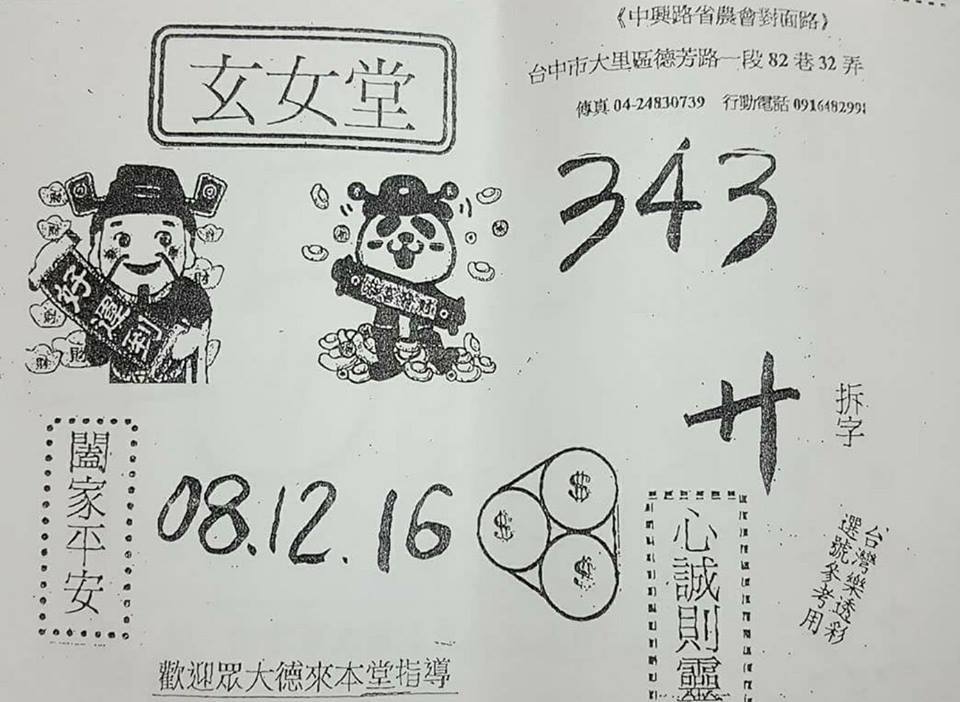 《中興路省農會對面路》
玄女堂
台中市大里區德芳路一段82巷32弄
傳真 04-24830739 行動電話 0916482998
343
財
財
財
財
財
財
好運到
恭喜發財
廿
拆字
闔家平安
08.12.16
$
$
$
心誠則靈
台灣樂透彩
選號參考用
歡迎眾大德來本堂指導